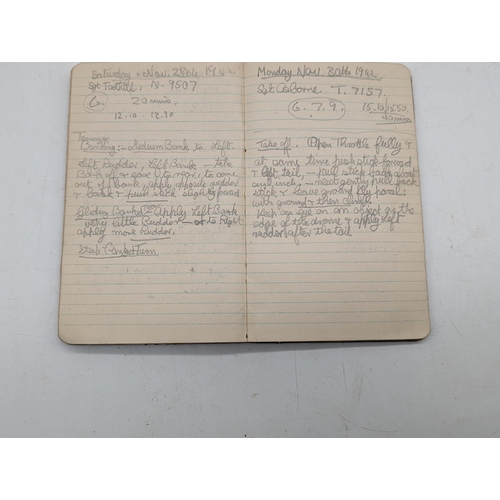 Saturday, Nov. 28th, 1942
Sgt Toothill, N-9507
6. 20 mins,
12.10 - 12.30
Banking:- Medium Bank to Left.
Left Rudder, Left Bank - take
Bank off & ease to
out of Bank, apply opposite rudder
& bank & push stick slightly forward.
Medium Banks - Apply Left Bank
very little Rudder - to Right
apply more Rudder.
Turn
Monday Nov. 30th, 1942
Sgt Osborne T. 7157.
6. 7. 9. 15.10/15.50.
40 mins
Take off. Open Throttle fully &
at same time push stick forward
& left tail, - pull stick back about
and inch, - next gently pull back
stick & leave ground fly paral.
with ground & then climb.
Keep an eye on an object at the
edge of the drome & apply left
rudder after the tail